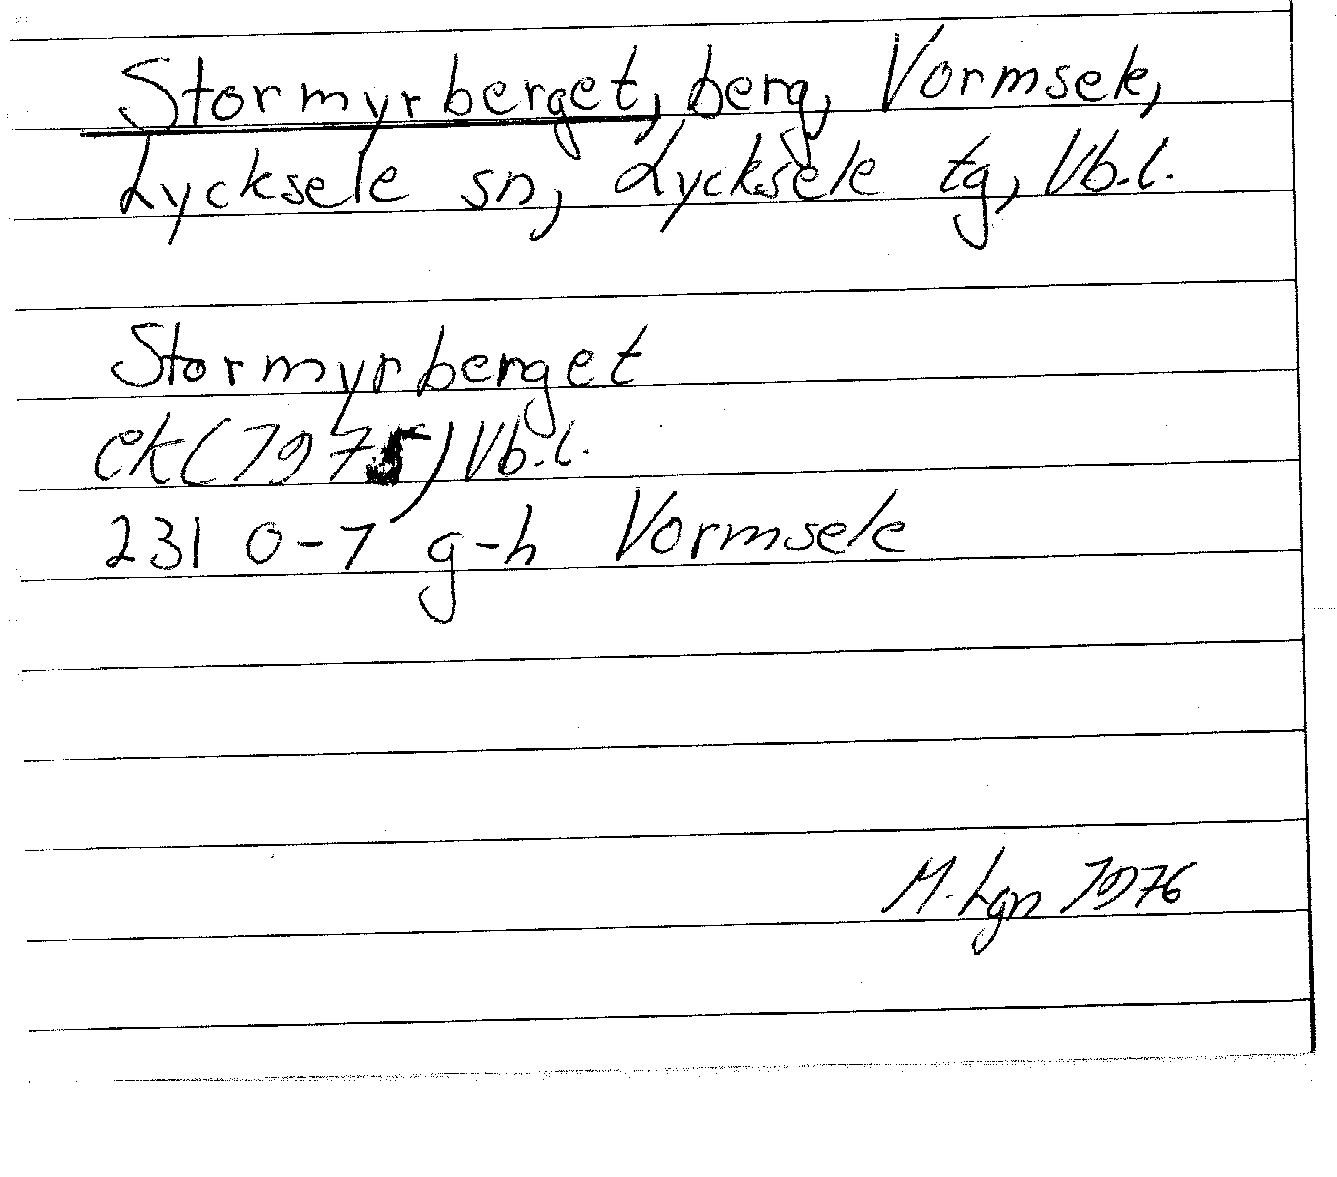 Stormyrberget, berg, Vormsele,
Lycksele sn, Lycksele tg, Vb.l.
Stormyrberget
ek (1975) Vb.l.
231 0-1 g-h Vormsele
M. Lgn 1976